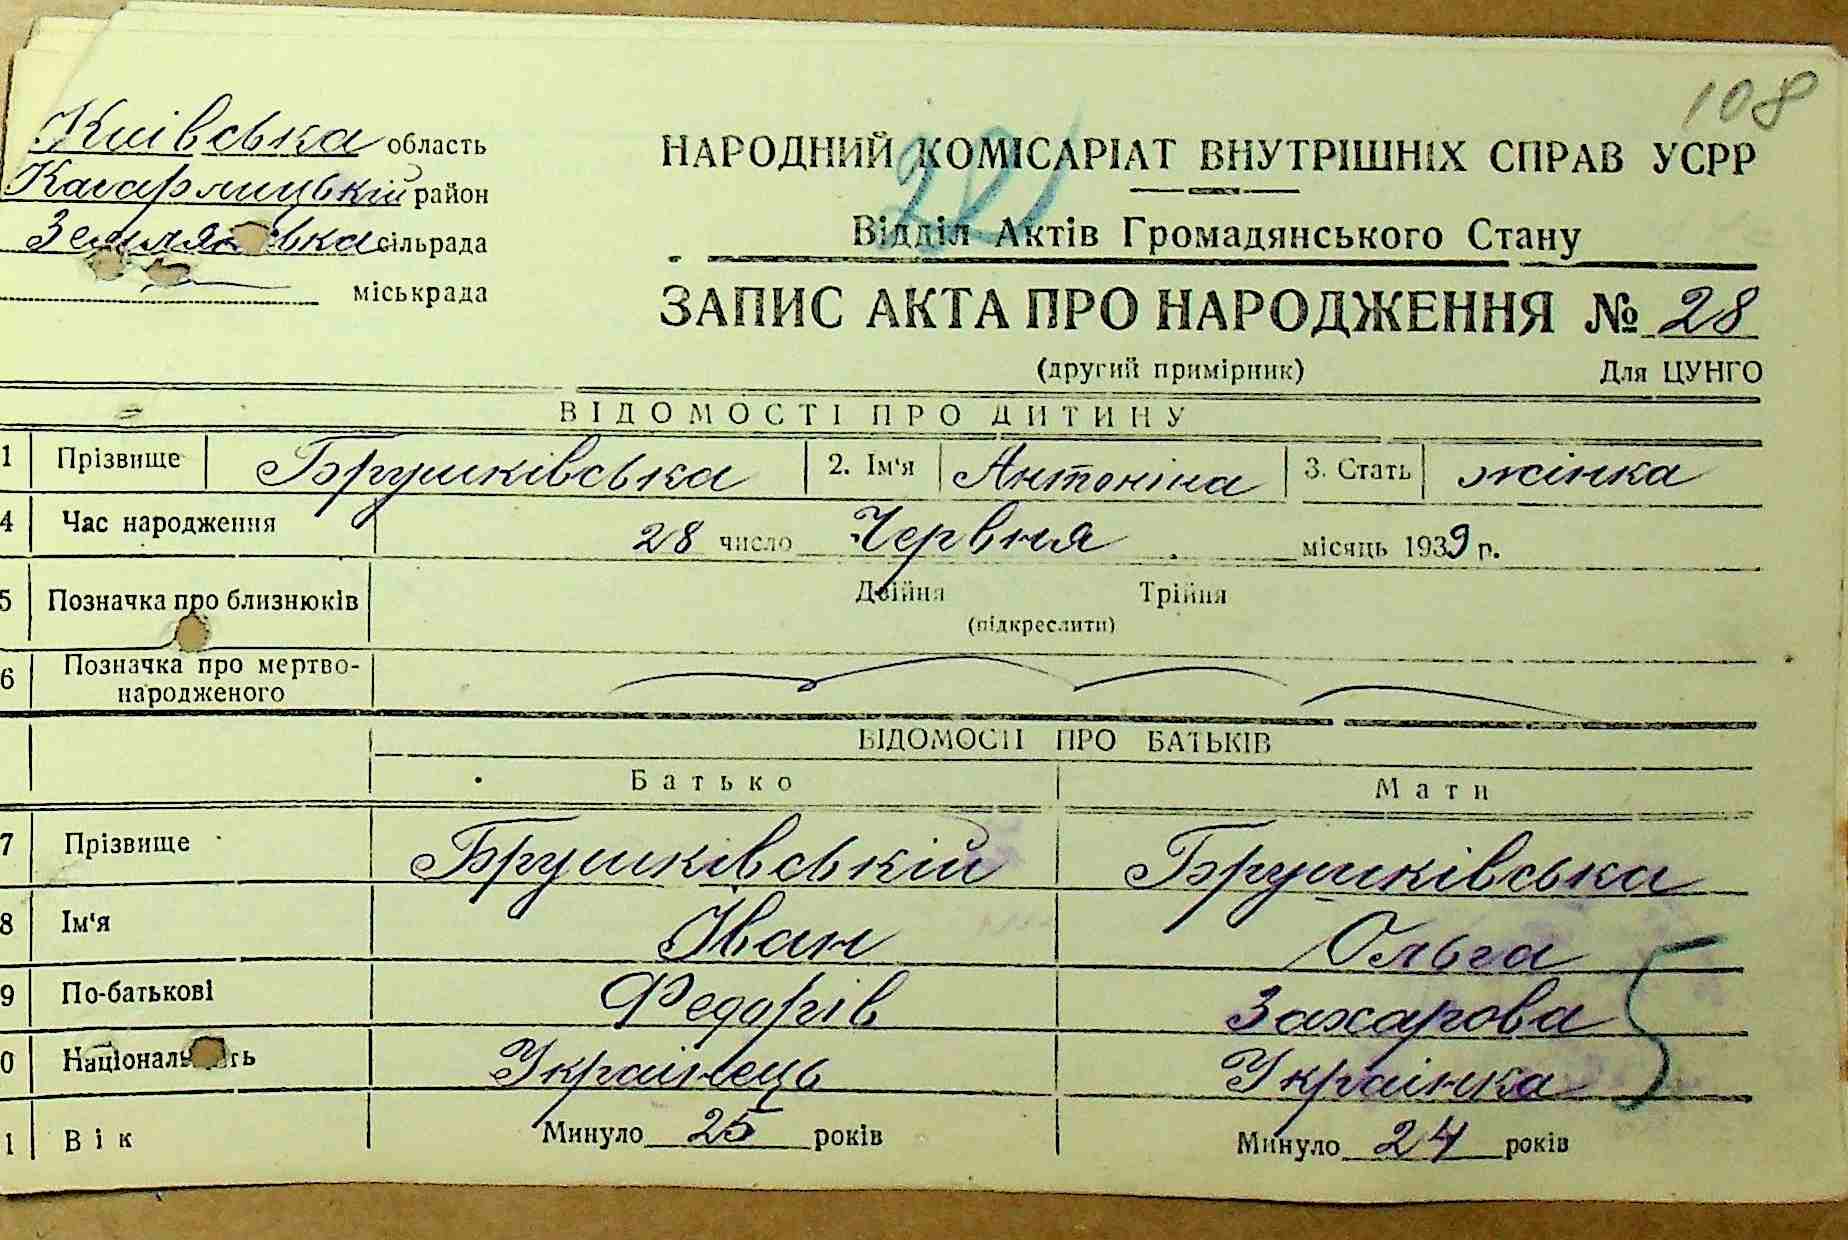 108
Київська область
Кагарлицькій район
сільрада
міськрада
НАРОДНИЙ КОМІСАРІАТ ВНУТРІШНІХ СПРАВ УСРР
221
Відділ Актів Громадянського Стану
ЗАПИС АКТА ПРО НАРОДЖЕННЯ № 28
(другий примірник) Для ЦУНГО
ВІДОМОСТІ ПРО ДИТИНУ
1 Прізвище Брушківська 2. Ім'я Антоніна 3. Стать жінка
4 Час народження 28 число Червня місяць 1939 р.
5 Позначка про близнюків Двійня Трійня
(підкреслити)
6 Позначка про мертво-
народженого
ВІДОМОСТІ ПРО БАТЬКІВ
Батько Мати
7 Прізвище Брушківській Брушківська
8 Ім'я Іван Ольга
9 По-батькові Федорів Захарова
0 Національність Українець Українка
5
1 Вік Минуло 25 років Минуло 24 років